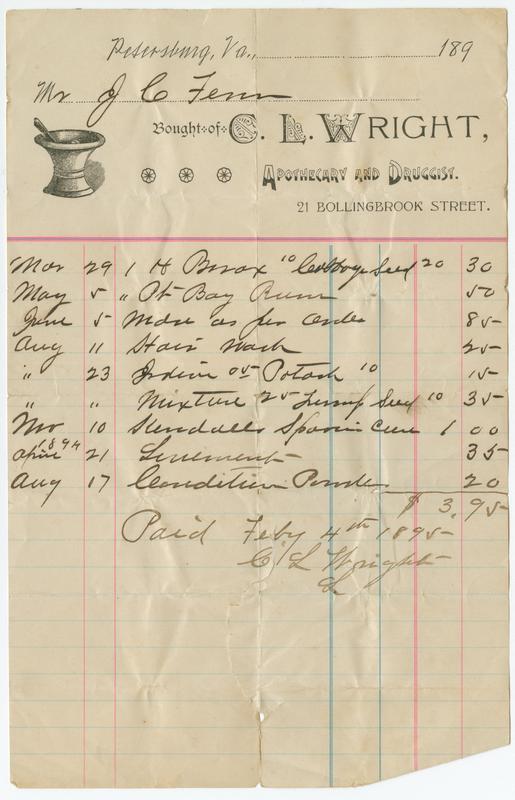 Petersburg, Va., 189
Mr J C Fenn
Bought of C. L. WRIGHT,
APOTHECARY AND DRUGGIST.
21 BOLLINGBROOK STREET.
Mar 29 1 H Borax 10 Cabbage Seed 20 30
May 5 " Pt Bay Rum 50
June 5 Mdse as per order 85
Aug 11 Hair Wash 25
" 23 Iodine 05 Potash 10 15
" " Mixture 25 Turnip Seed 10 35
Nov 10 Kendalls Spavin Cure 1 00
1894
April 21 Linement 35
Aug 17 Condition Powder 20
$ 3.95
Paid Feby 4th 1895
C. L. Wright